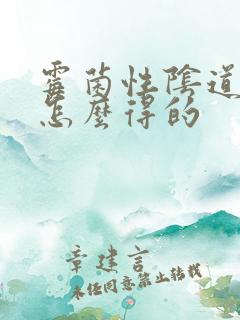 霉菌性陰道
怎麼得的
章建言
未经同意禁止转载